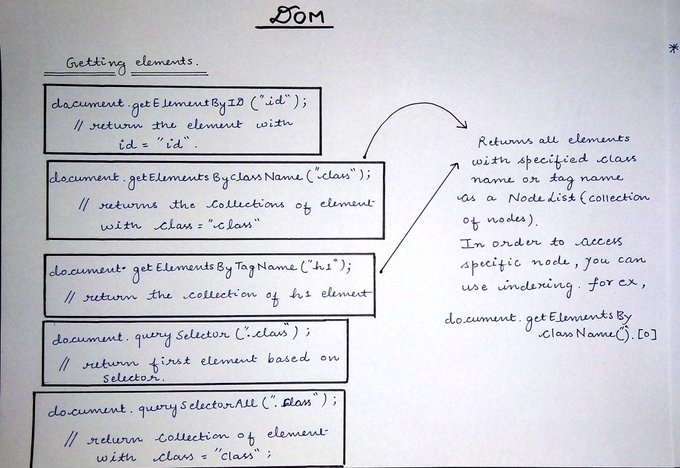 DOM
Getting elements.
document.getElementByID ("id");
// return the element with
id = "id".
document.getElementsByClassName ("class");
// returns the collections of element
with class = "class"
document. getElementsByTagName ("h1");
// return the collection of h1 element
document. query Selector (".class") ;
// return first element based on
selector.
document. querySelectorAll (". class") ;
// return collection of element
with class = "class" ;
*
Returns all elements
with specified class
name or tag name
as a NodeList (collection
of nodes).
In order to access
specific node, you can
use indexing. for ex,
document.getElementsBy
className(").[0]